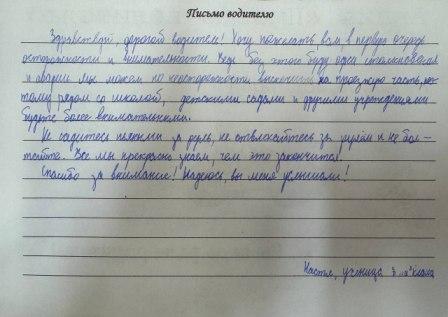 Письмо водителю
Здравствуй, дорогой водитель! Хочу пожелать вам в первую очередь
осторожности и внимательности. Ведь без этого будут одни столкновения
и аварии. Мы можем по неосторожности выскочить на проезжую часть, поэ-
тому рядом со школой, детскими садами и другими учреждениями
будьте более внимательными.
Не садитесь пьяными за руль, не отвлекайтесь за рулём и не бол-
тайте. Все мы прекрасно знаем, чем это закончится.
Спасибо за внимание! Надеюсь, вы меня услышали!
Настя, ученица 5 "а" класса